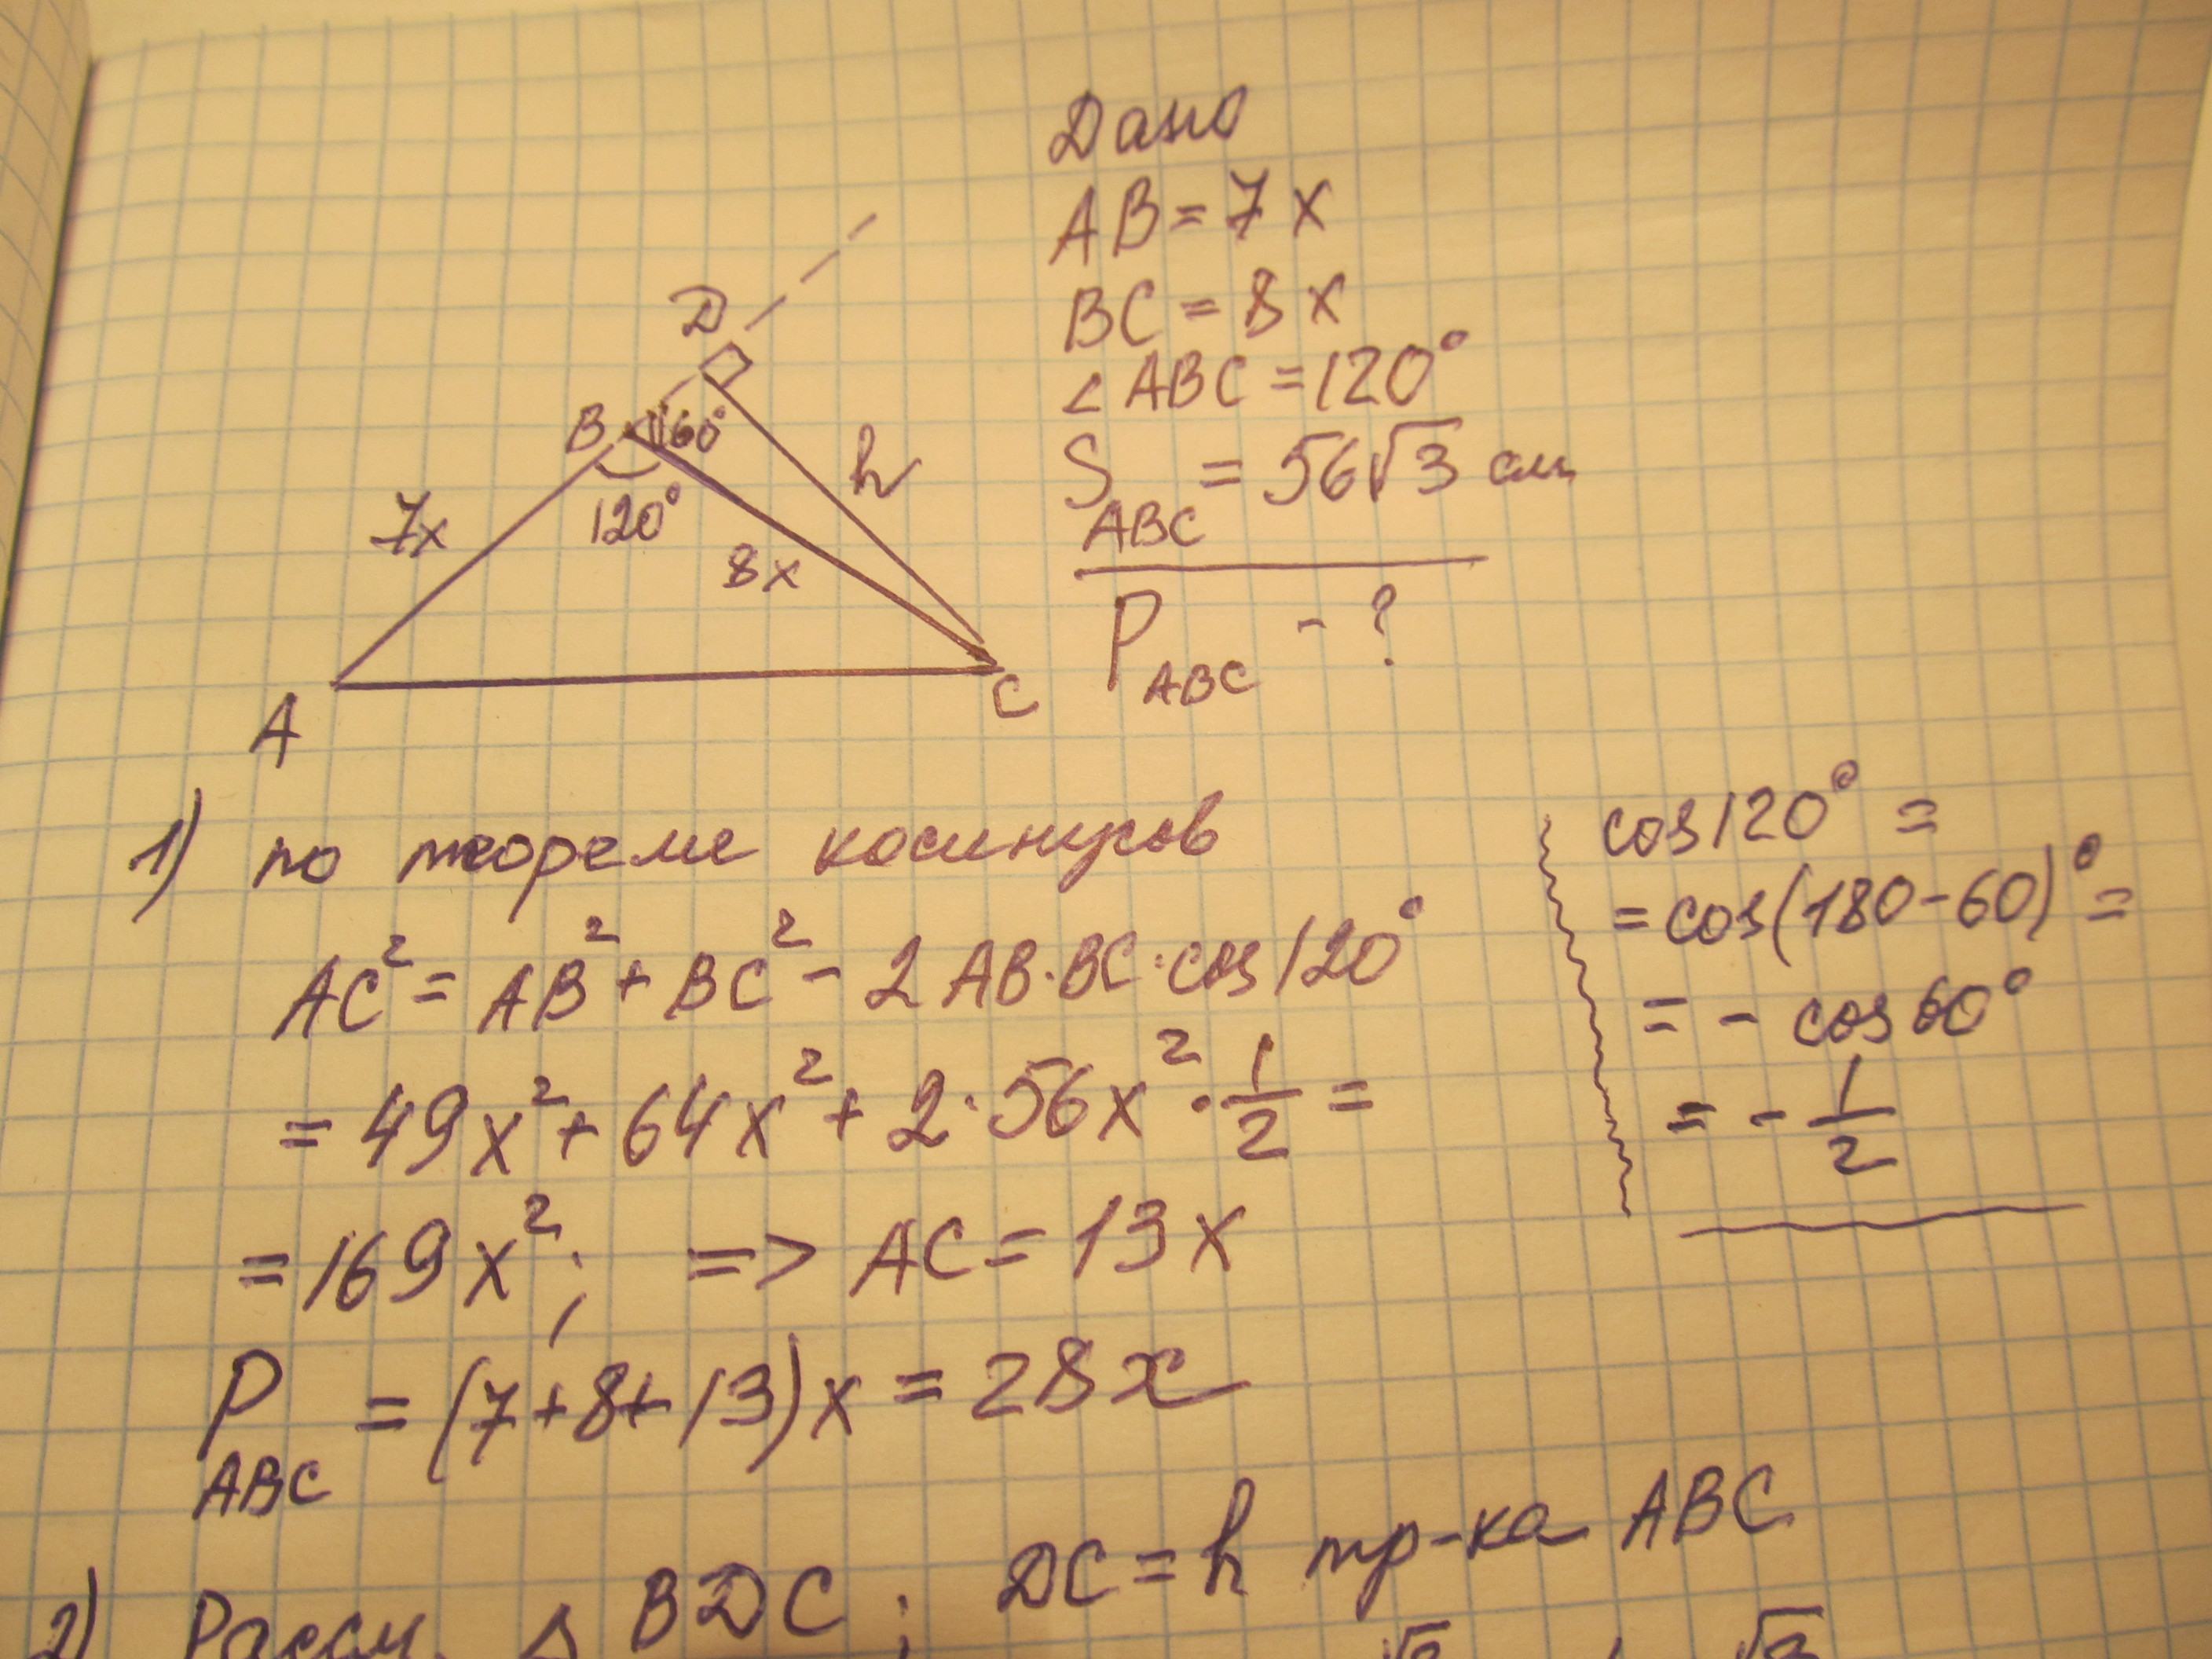 Дано
AB = 7x
BC = 8x
∠ABC = 120°
S ABC = 56√3 см
P ABC - ?
D
B 60°
h
7x
120°
8x
A
C
1) по теореме косинусов
AC² = AB² + BC² - 2AB·BC·cos120°
= 49x² + 64x² + 2·56x²·1/2 =
= 169x²; => AC = 13x
P ABC = (7+8+13)x = 28x
cos120° =
= cos(180-60)° =
= - cos60°
= - 1/2
2) Рассм. Δ BDC; DC = h тр-ка ABC